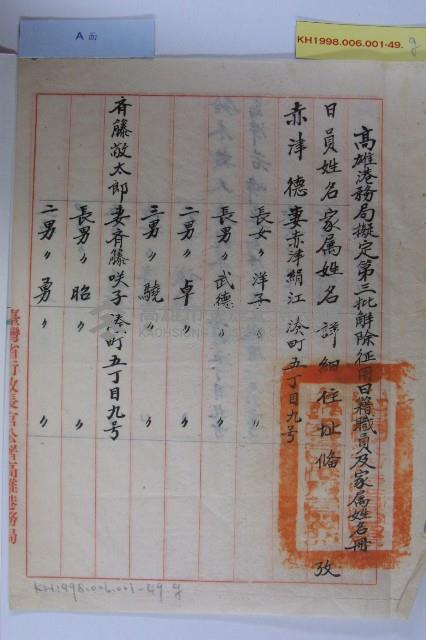 A面
KH1998.006.001-49. g
高雄港務局擬定第三批解除征用日籍職員及家属姓名冊
日員姓名 家属姓名 詳細住址 俻攷
赤津德 妻赤津絹江 湊町五丁目九号
長女〃洋子 〃
長男〃武德 〃
二男〃卓 〃
三男〃驍 〃
斉藤敬太郎 妻斉藤咲子 湊町五丁目九号
長男〃昭 〃 〃
二男〃勇 〃 〃
臺灣省行政長官公署高雄港務局
KH1998.006.001-49.g